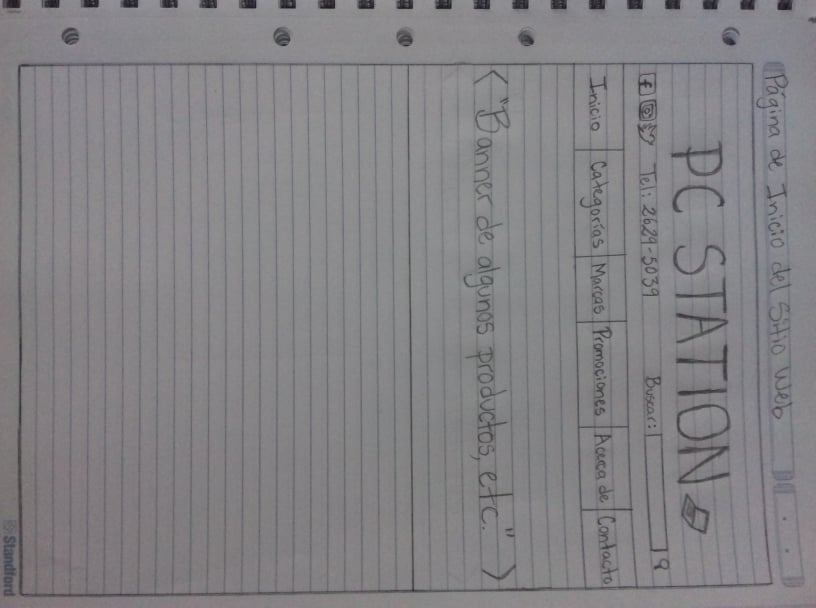 Página de Inicio del Sitio Web
PC STATION
f Tel: 2629-5039 Buscar:
Inicio Categorías Marcas Promociones Acerca de Contacto
< "Banner de algunos productos, etc." >
Standford